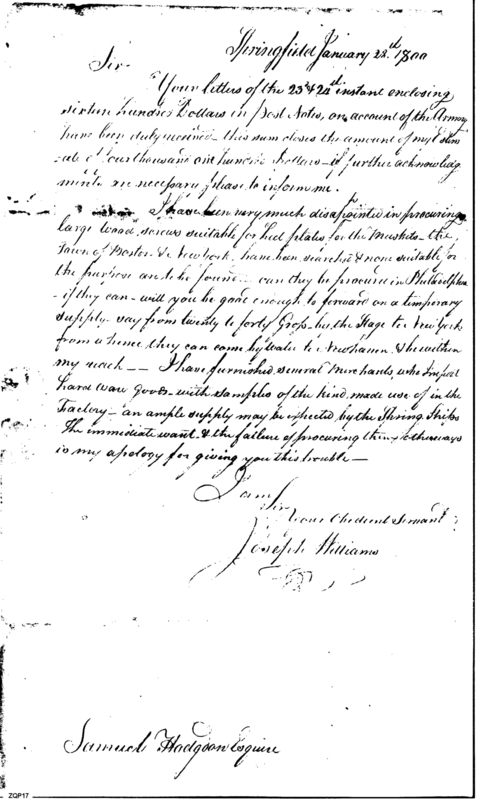 Springfield January 28th 1800
Sir-
Your letters of the 23d & 24th instant enclosing
sixteen hundred Dollars in post Notes, on account of the Armory
have been duly received - this sum closes the amount of my Estim
ate of four thousand one hundred dollars - if further acknowledg
ments are necessary please to inform me.
I have been very much disappointed in procuring
large wood screws suitable for heel plates for the Muskets - the
Town of Boston & New York have been searched & none suitable for
the purpose are to be found - can they be procured in Philadelphia
- if they can - will you be good enough to forward on a temporary
supply - say from twenty to forty Gross by the Stage to New York
from whence they can come by Water to Newhaven & be within
my reach - I have furnished several Merchants who Import
hard ware goods - with samples of the kind made use of in the
Factory - an ample supply may be expected by the Spring Ships
The immediate want & the failure of procuring them otherways
is my apology for giving you this trouble -
I am
Sir
Your Obedient Servant
Joseph Williams
Samuel Hodgson Esquire
ZQP17